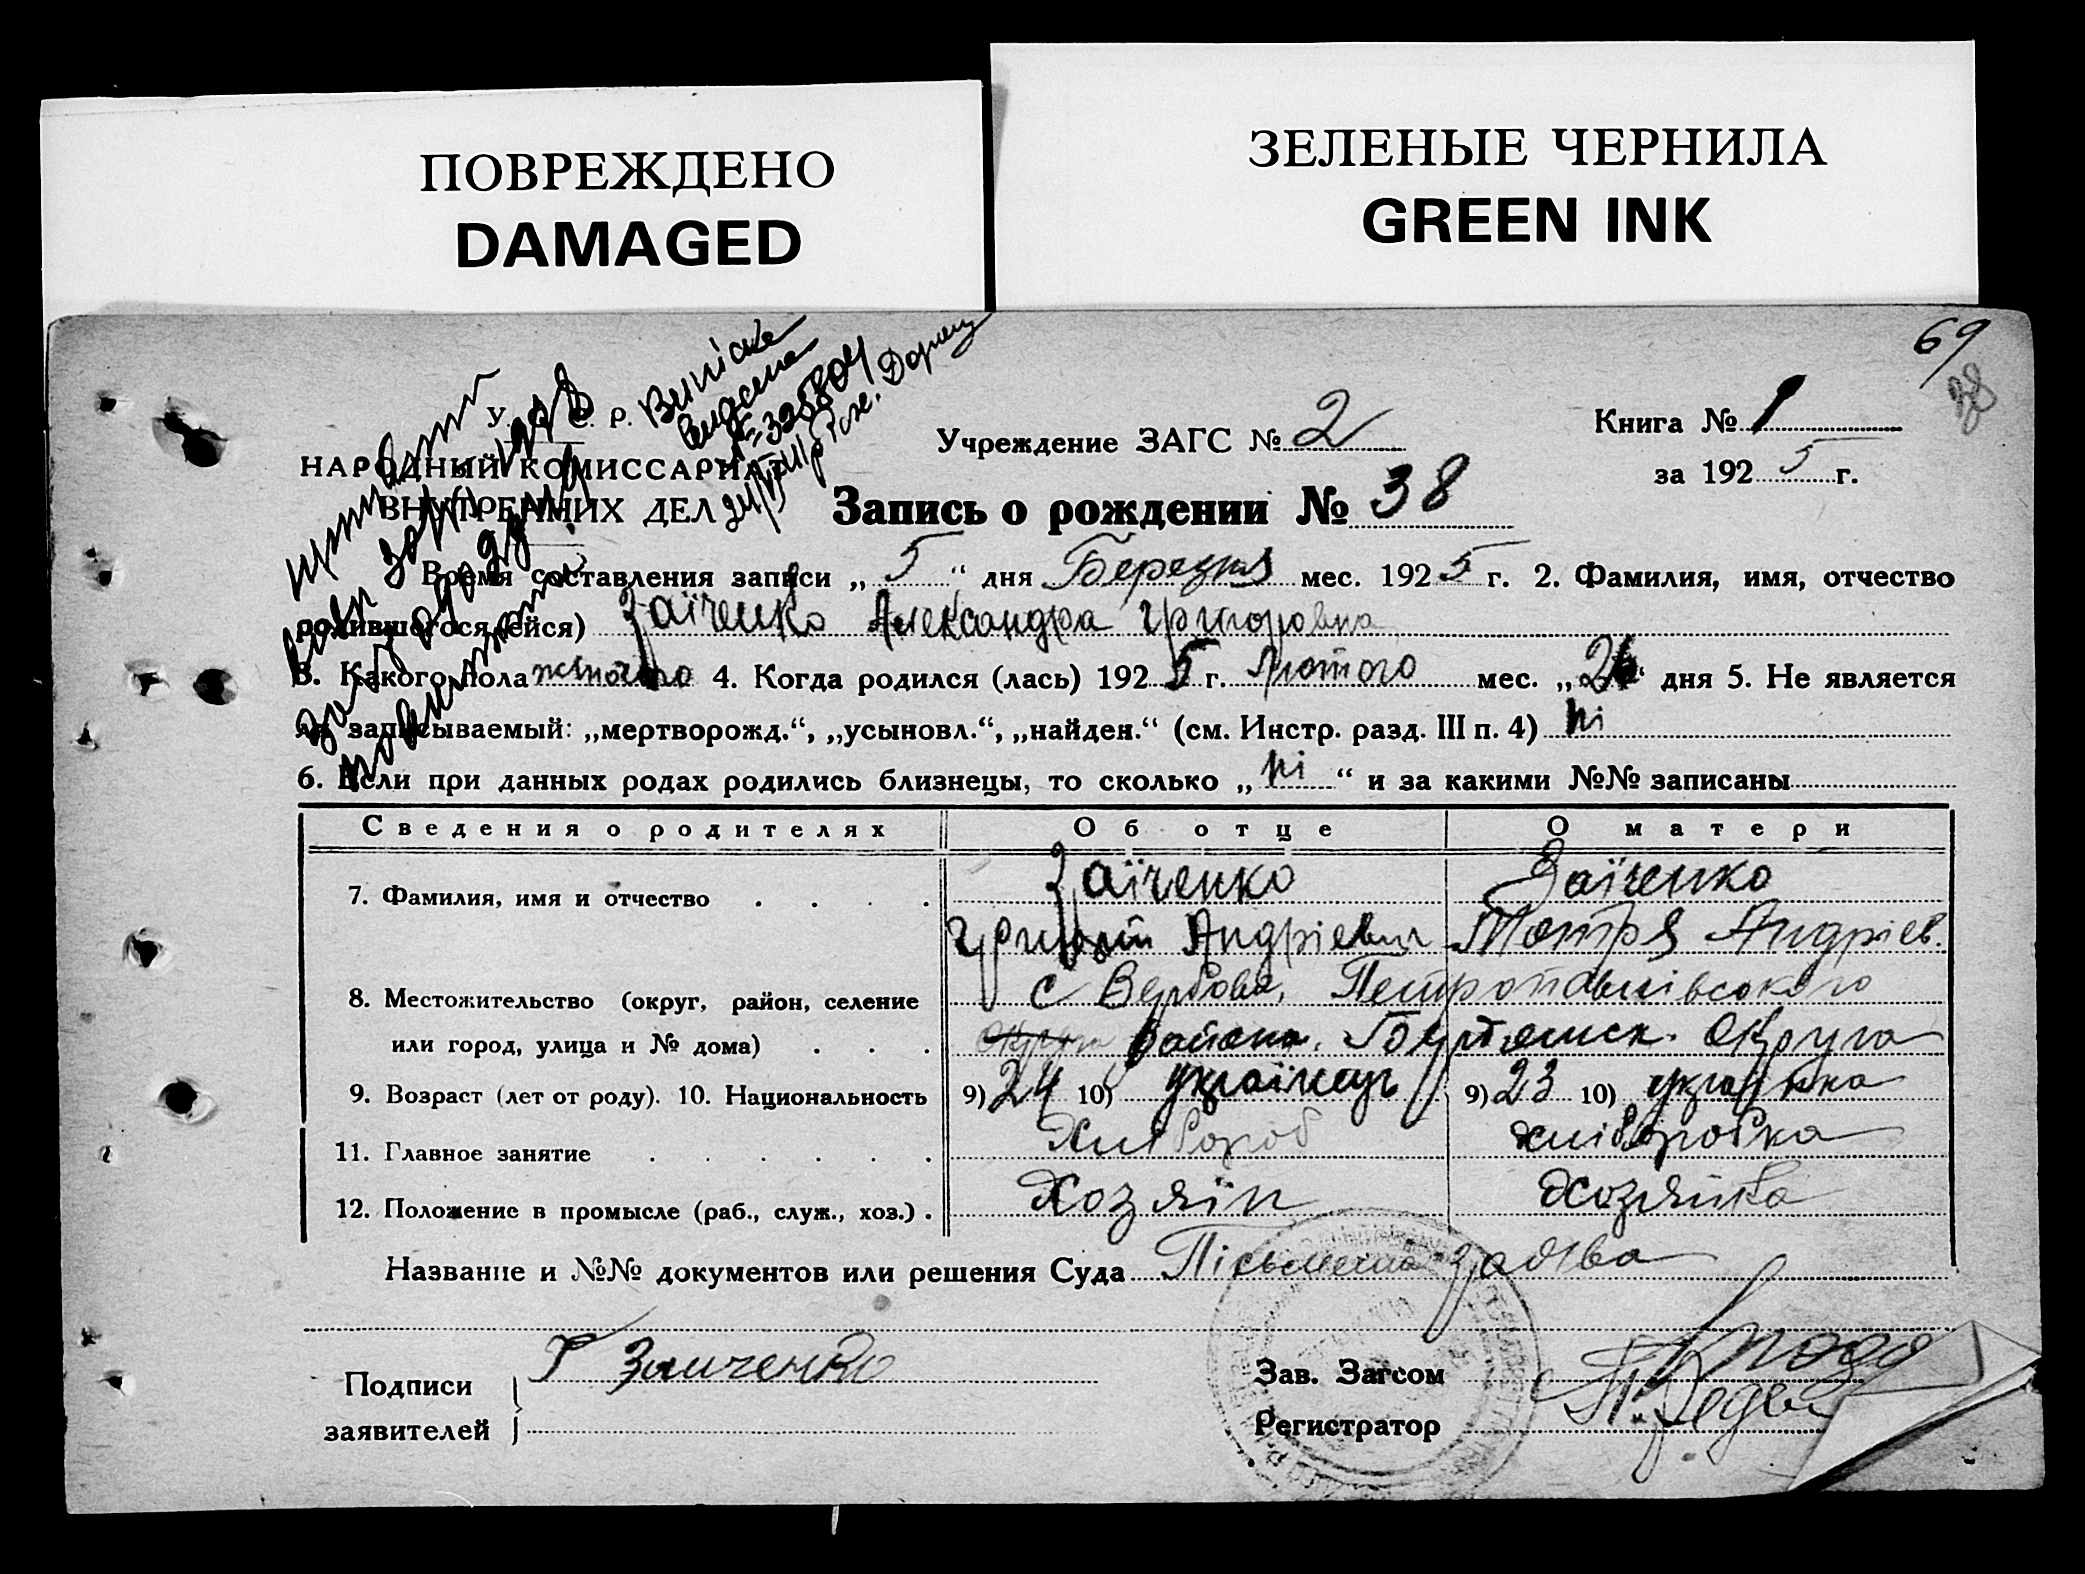 ПОВРЕЖДЕНО
DAMAGED
ЗЕЛЕНЫЕ ЧЕРНИЛА
GREEN INK
69
38
У. С. С. Р.
НАРОДНЫЙ КОМИССАРИАТ
ВНУТРЕННИХ ДЕЛ
Учреждение ЗАГС № 2
Книга № 1
за 1925 г.
Запись о рождении № 38
Время составления записи „5“ дня Березня мес. 1925 г. 2. Фамилия, имя, отчество
родившегося (ейся) Заїченко Александра Григоровна
3. Какого пола жіночого 4. Когда родился (лась) 1925 г. Лютого мес. „26“ дня 5. Не является
ли записываемый: „мертворожд.“, „усыновл.“, „найден.“ (см. Инстр. разд. III п. 4) ні
6. Если при данных родах родились близнецы, то сколько „ні“ и за какими №№ записаны
Сведения о родителях Об отце О матери
7. Фамилия, имя и отчество Заїченко Заїченко
Григорій Андрієвич Мотря Андріев.
8. Местожительство (округ, район, селение с Вербова, Петропавлівського
или город, улица и № дома) округи района. Бердянск. Округа
9. Возраст (лет от роду). 10. Национальность 9) 24 10) українець 9) 23 10) українка
11. Главное занятие Хлібороб хліборобка
12. Положение в промысле (раб., служ., хоз.) Хозяїн Хозяйка
Название и №№ документов или решения Суда Пісьмена заява
Подписи
заявителей
Г Заиченко
Зав. Загсом
Регистратор